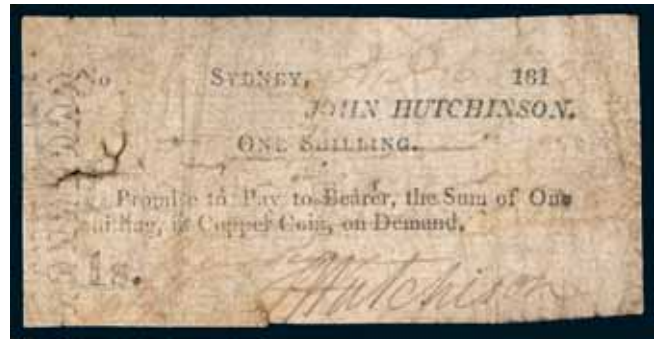 No SYDNEY, 181
JOHN HUTCHINSON.
ONE SHILLING.
Promise to Pay to Bearer, the Sum of One
Shilling, in Copper Coin, on Demand,
1s.
Hutchison